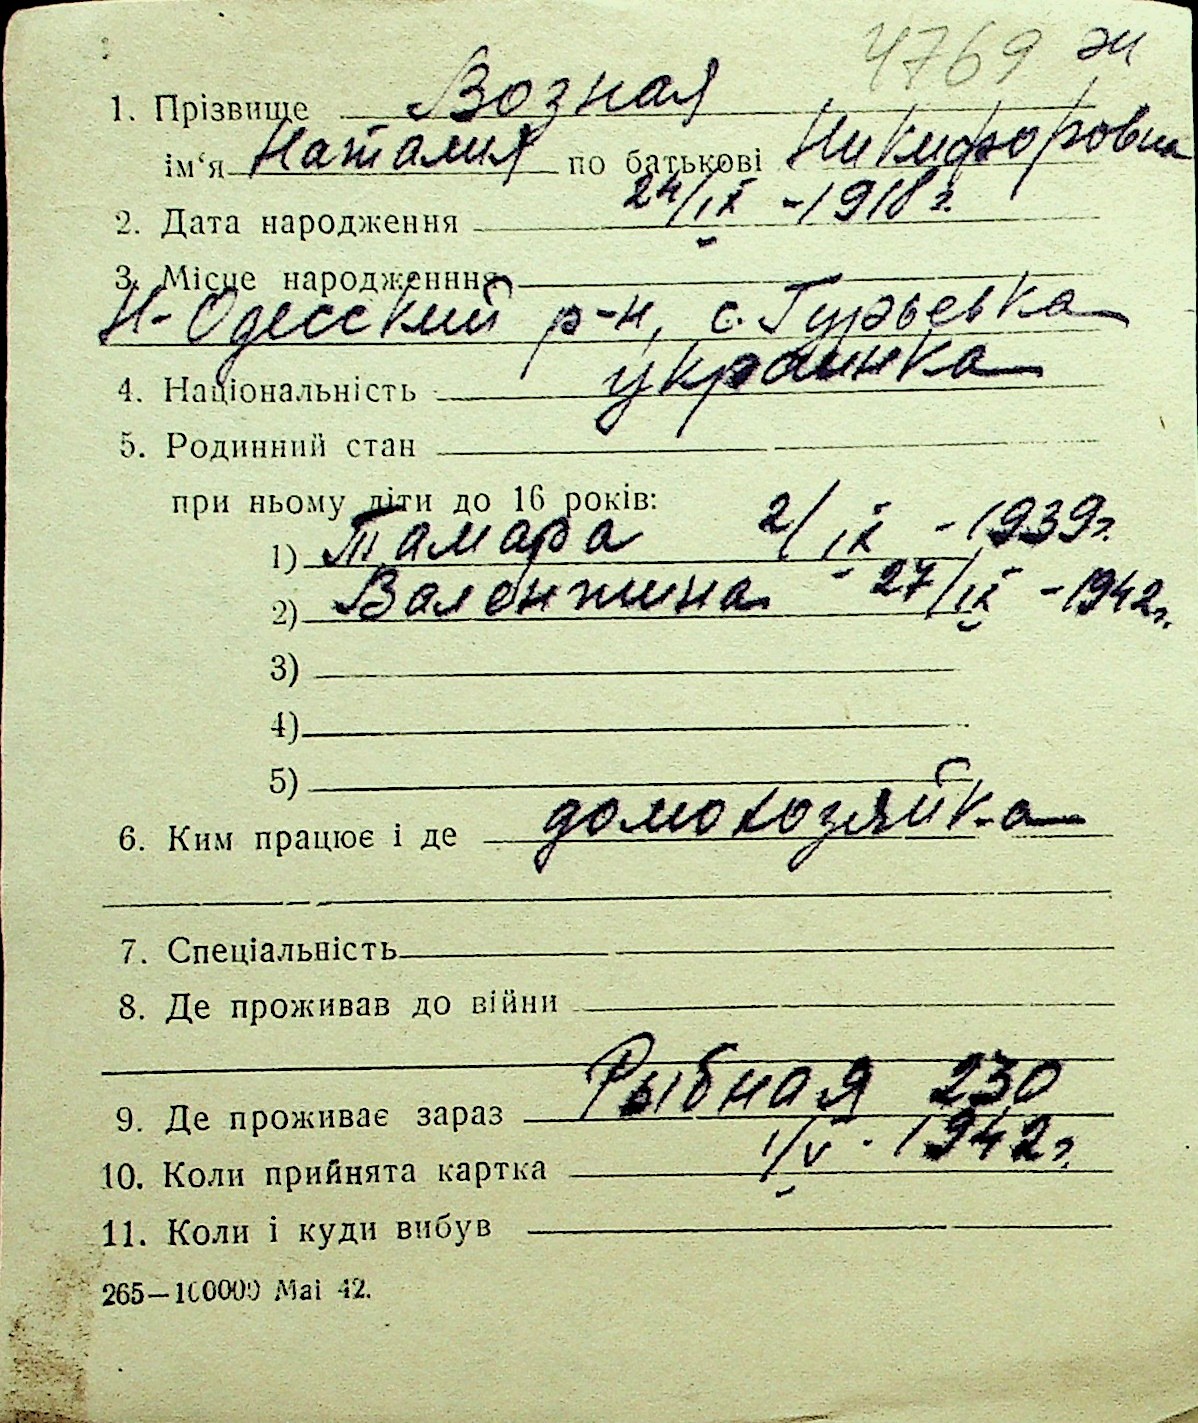 4769 эи
1. Прізвище Возная
ім‘я Наталия по батькові Никифоровна
2. Дата народження 24/IX -1918 г.
3. Місце народженння
Н-Одесский р-н, с. Гурьевка
4. Національність украинка
5. Родинний стан
при ньому діти до 16 років:
1) Тамара 2/IX -1939г.
2) Валентина - 27/IX -1942г.
3)
4)
5)
6. Ким працює і де домохозяйка
7. Спеціальність
8. Де проживав до війни
9. Де проживає зараз Рыбная 230
10. Коли прийнята картка 1/V. 1942г.
11. Коли і куди вибув
265—100000 Mai 42.